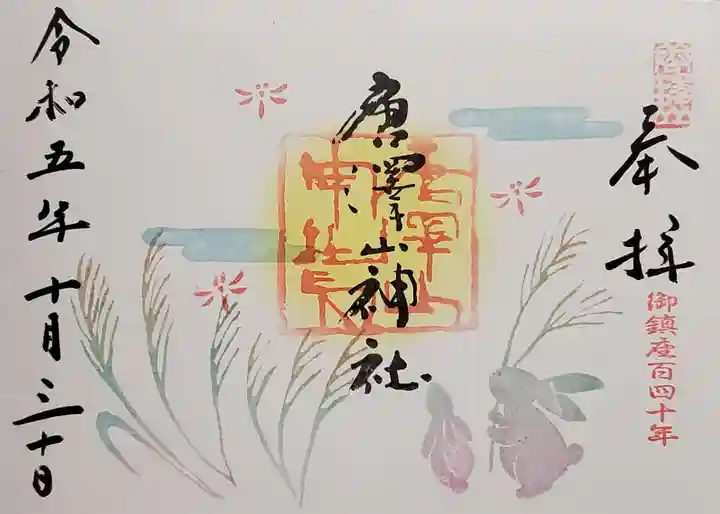 奉拝
御鎮座百四十年
唐澤山神社
令和五年十月三十日